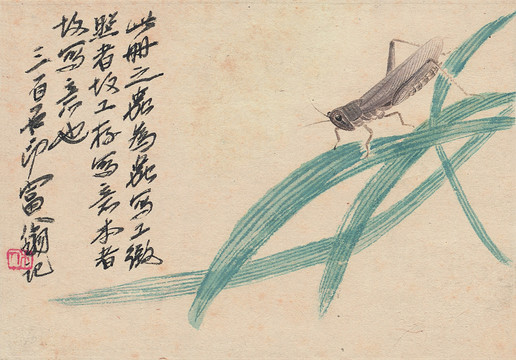 此冊之蟲為蟲寫工緻
照者故工存寫意本者
故寫意也
三百石印富翁記